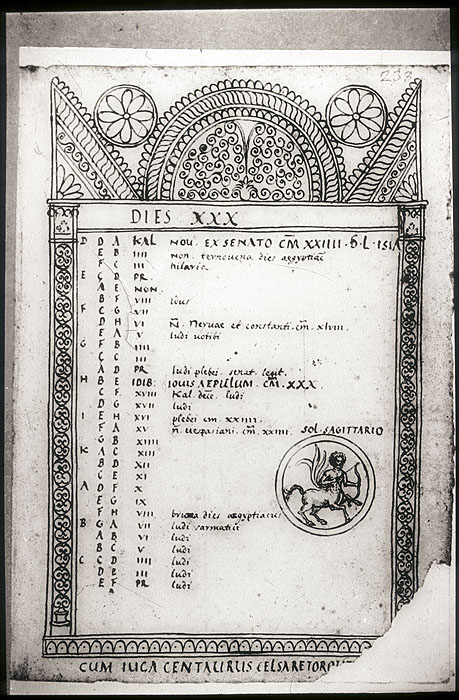 233
DIES XXX
D D A KAL NOV. EX SENATO CM̄ XXIIII · S · L · ISIA
E B IIII non. ternovena dies aegyptiac
F C III hilaria
E C D PR.
A E NON.
B F VIII idus
F C G VII
D H VI N̄. Nervae et constanti. cm̄. xlviii.
E A V ludi votibi
G F B IIII
C III
A D PR ludi plebei. senat. legit.
H B E IDIB. IOVIS AEPULUM. CM̄. XXX.
C F XVIII Kal. dece. ludi
D G XVII ludi
I E H XVI plebei cm̄. xxiiii.
F A XV n̄. vespasiani. cm̄. xxiiii. SOL · SAGITTARIO
G B XIIII
K A C XIII
B D XII
C E XI
A D F X
E G IX
F H VIII bruma dies aegyptiacus
B G A VII ludi sarmatici
A B VI ludi
B C V ludi
C C D IIII ludi
D E III ludi
E F PR ludi
CUM IUCA CENTAURUS CELSA RETORQUE